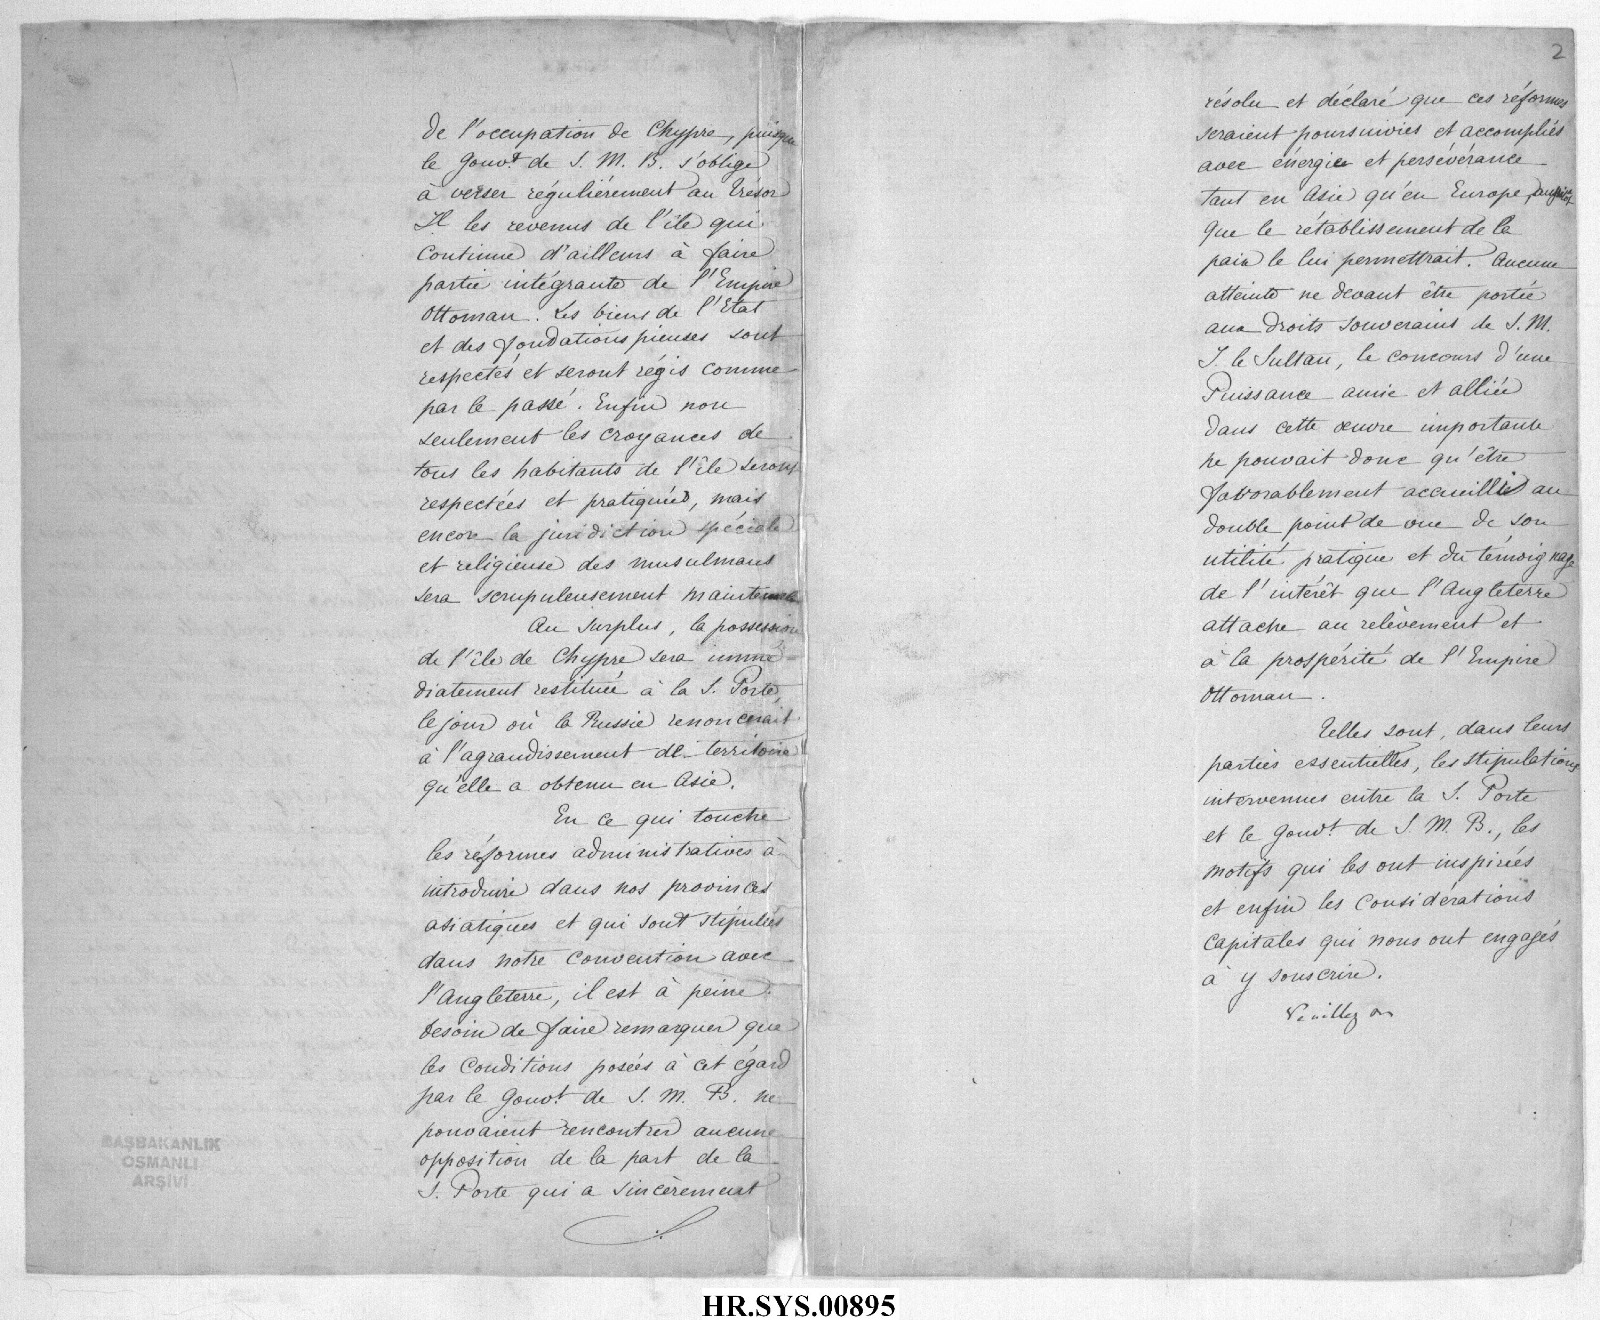 de l'occupation de Chypre, puisque
le Gouvt de S. M. B. s'oblige
à verser régulièrement au Trésor
Il les revenus de l'île qui
continue d'ailleurs à faire
partie intégrante de l'Empire
Ottoman. Les biens de l'Etat
et des fondations pieuses sont
respectés et seront régis comme
par le passé. Enfin non
seulement les croyances de
tous les habitants de l'île seront
respectées et pratiquées, mais
encore la juridiction spéciale
et religieuse des musulmans
sera scrupuleusement maintenue
Au surplus, la possession
de l'île de Chypre sera immé=
diatement restituée à la S. Porte,
le jour où la Russie renoncerait
à l'agrandissement de territoire
qu'elle a obtenu en Asie.
En ce qui touche
les réformes administratives à
introduire dans nos provinces
asiatiques et qui sont stipulées
dans notre convention avec
l'Angleterre, il est à peine
besoin de faire remarquer que
les conditions posées à cet égard
par le Gouvt de S. M. B. ne
pouvaient rencontrer aucune
opposition de la part de la
S. Porte qui a sincèrement
BAŞBAKANLIK
OSMANLI
ARŞİVİ
2
résolu et déclaré que ces réformes
seraient poursuivies et accomplies
avec énergie et persévérance
tant en Asie qu'en Europe, aussitôt
que le rétablissement de la
paix le lui permettrait. Aucune
atteinte ne devant être portée
aux droits souverains de S. M.
I. le Sultan, le concours d'une
Puissance amie et alliée
dans cette œuvre importante
ne pouvait donc qu'être
favorablement accueilli au
double point de vue de son
utilité pratique et du témoignage
de l'intérêt que l'Angleterre
attache au relèvement et
à la prospérité de l'Empire
Ottoman.
Telles sont, dans leurs
parties essentielles, les stipulations
intervenues entre la S. Porte
et le Gouvt de S. M. B., les
motifs qui les ont inspirées
et enfin les considérations
capitales qui nous ont engagés
à y souscrire.
Veuillez
HR.SYS.00895